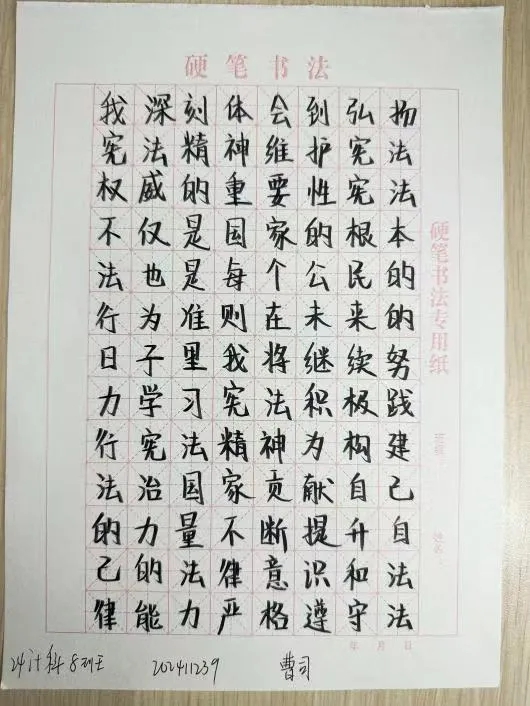 硬笔书法
我深刻体会到弘扬
宪法精神维护宪法
权威的重要性宪法
不仅是国家的根本
法也是每个公民的
行为准则在未来的
日子里我将继续努
力学习宪法积极践
行宪法精神为构建
法治国家贡献自己
的力量不断提升自
己的法律意识和法
律能力严格遵守法
硬笔书法专用纸
姓名：
年 月 日
24计科8班 202411239 曹司